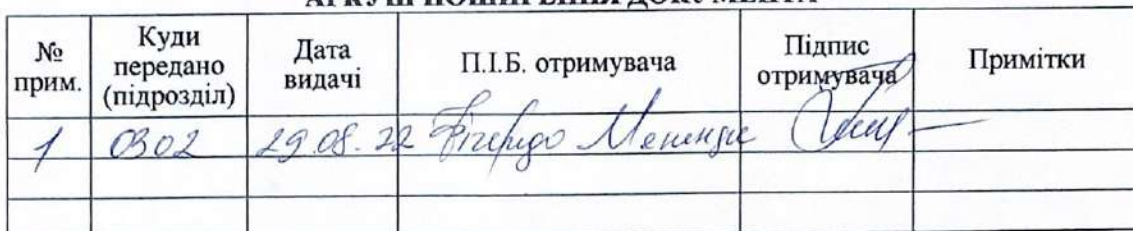 АРКУШ ПОШИРЕННЯ ДОКУМЕНТА
№ прим.
Куди передано (підрозділ)
Дата видачі
П.І.Б. отримувача
Підпис отримувача
Примітки
1 0302 29.08.22 Фігередо Менендес —